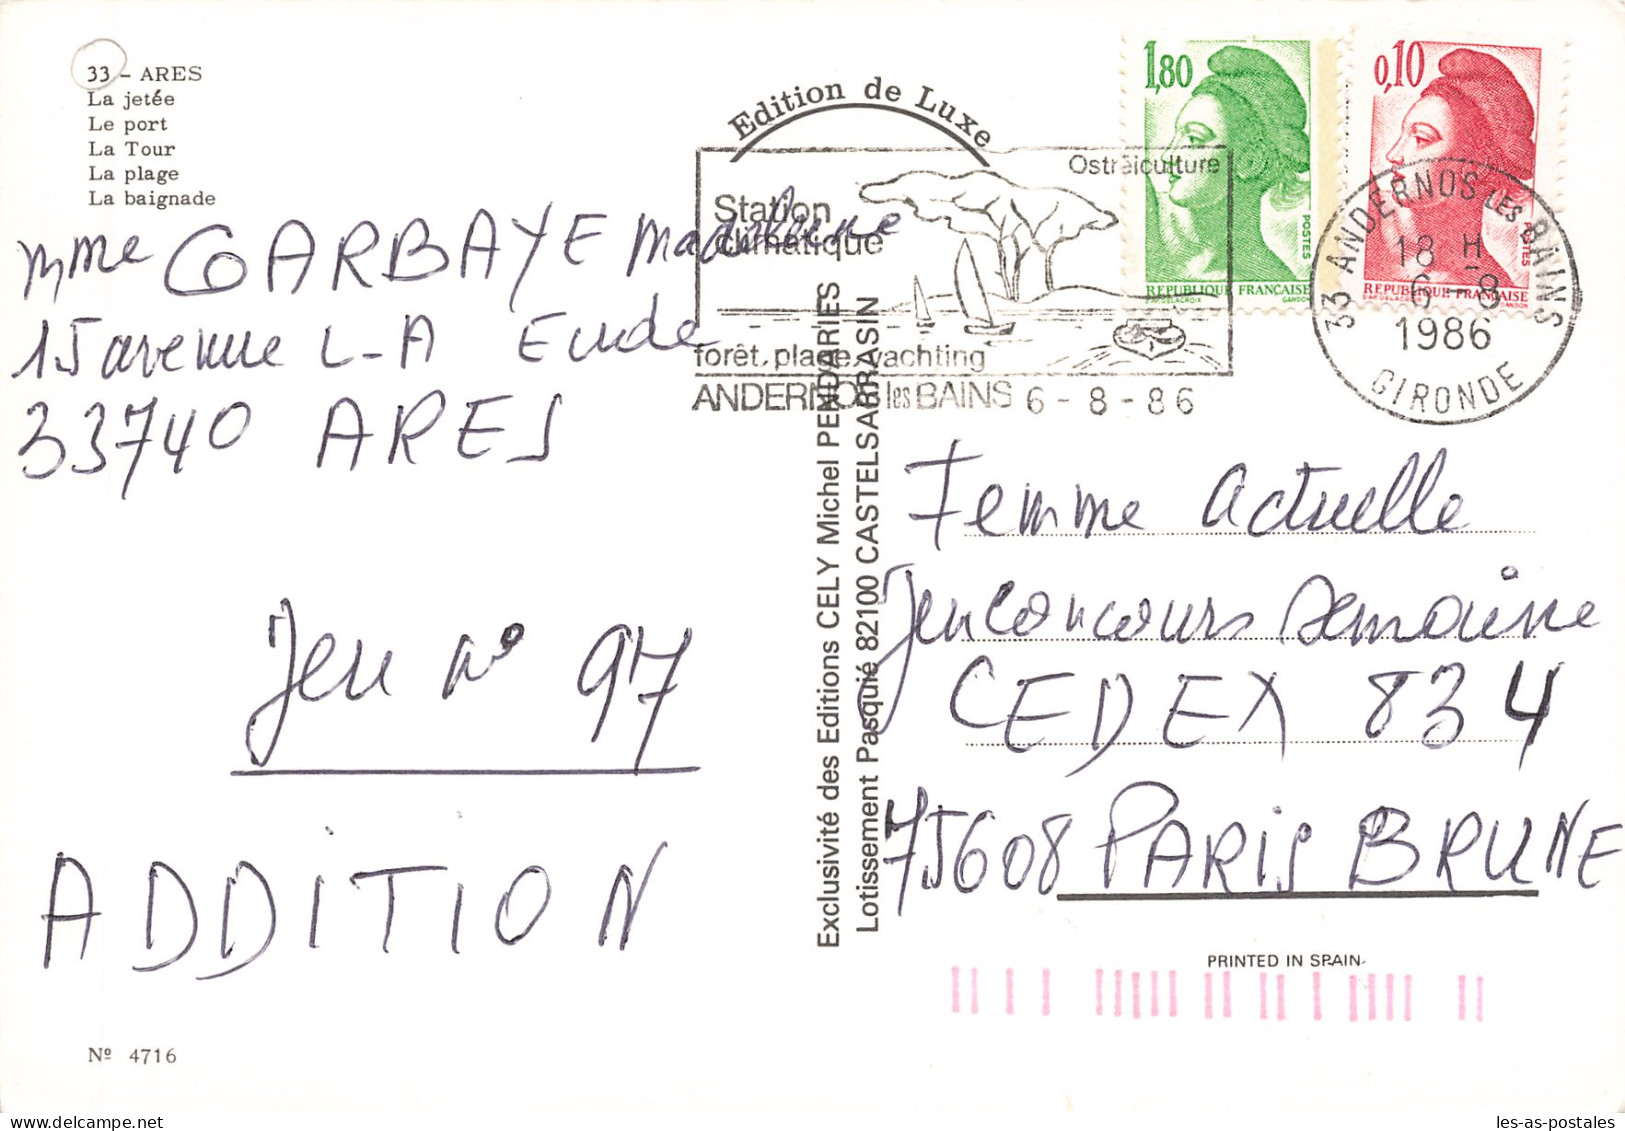 33 - ARES
La jetée
Le port
La Tour
La plage
La baignade
Mme GARBAYE Madeleine
15 avenue L-A
33740 ARES
Jeu n° 97
ADDITION
Nº 4716
Edition de Luxe
Station climatique
Ostréiculture
forêt, plage, yachting
ANDERNOS les BAINS 6-8-86
1,80
POSTES
REPUBLIQUE FRANÇAISE
D'AP. DELACROIX GANDON
0,10
POSTES
REPUBLIQUE FRANÇAISE
D'AP. DELACROIX GANDON
33 ANDERNOS LES BAINS
18 H
6-8
1986
GIRONDE
Exclusivité des Editions CELY Michel PENDARIES
Lotissement Pasquié 82100 CASTELSARRASIN
Femme Actuelle
Jeu Concours Semaine
CEDEX 834
75608 PARIS BRUNE
PRINTED IN SPAIN
les-as-postales